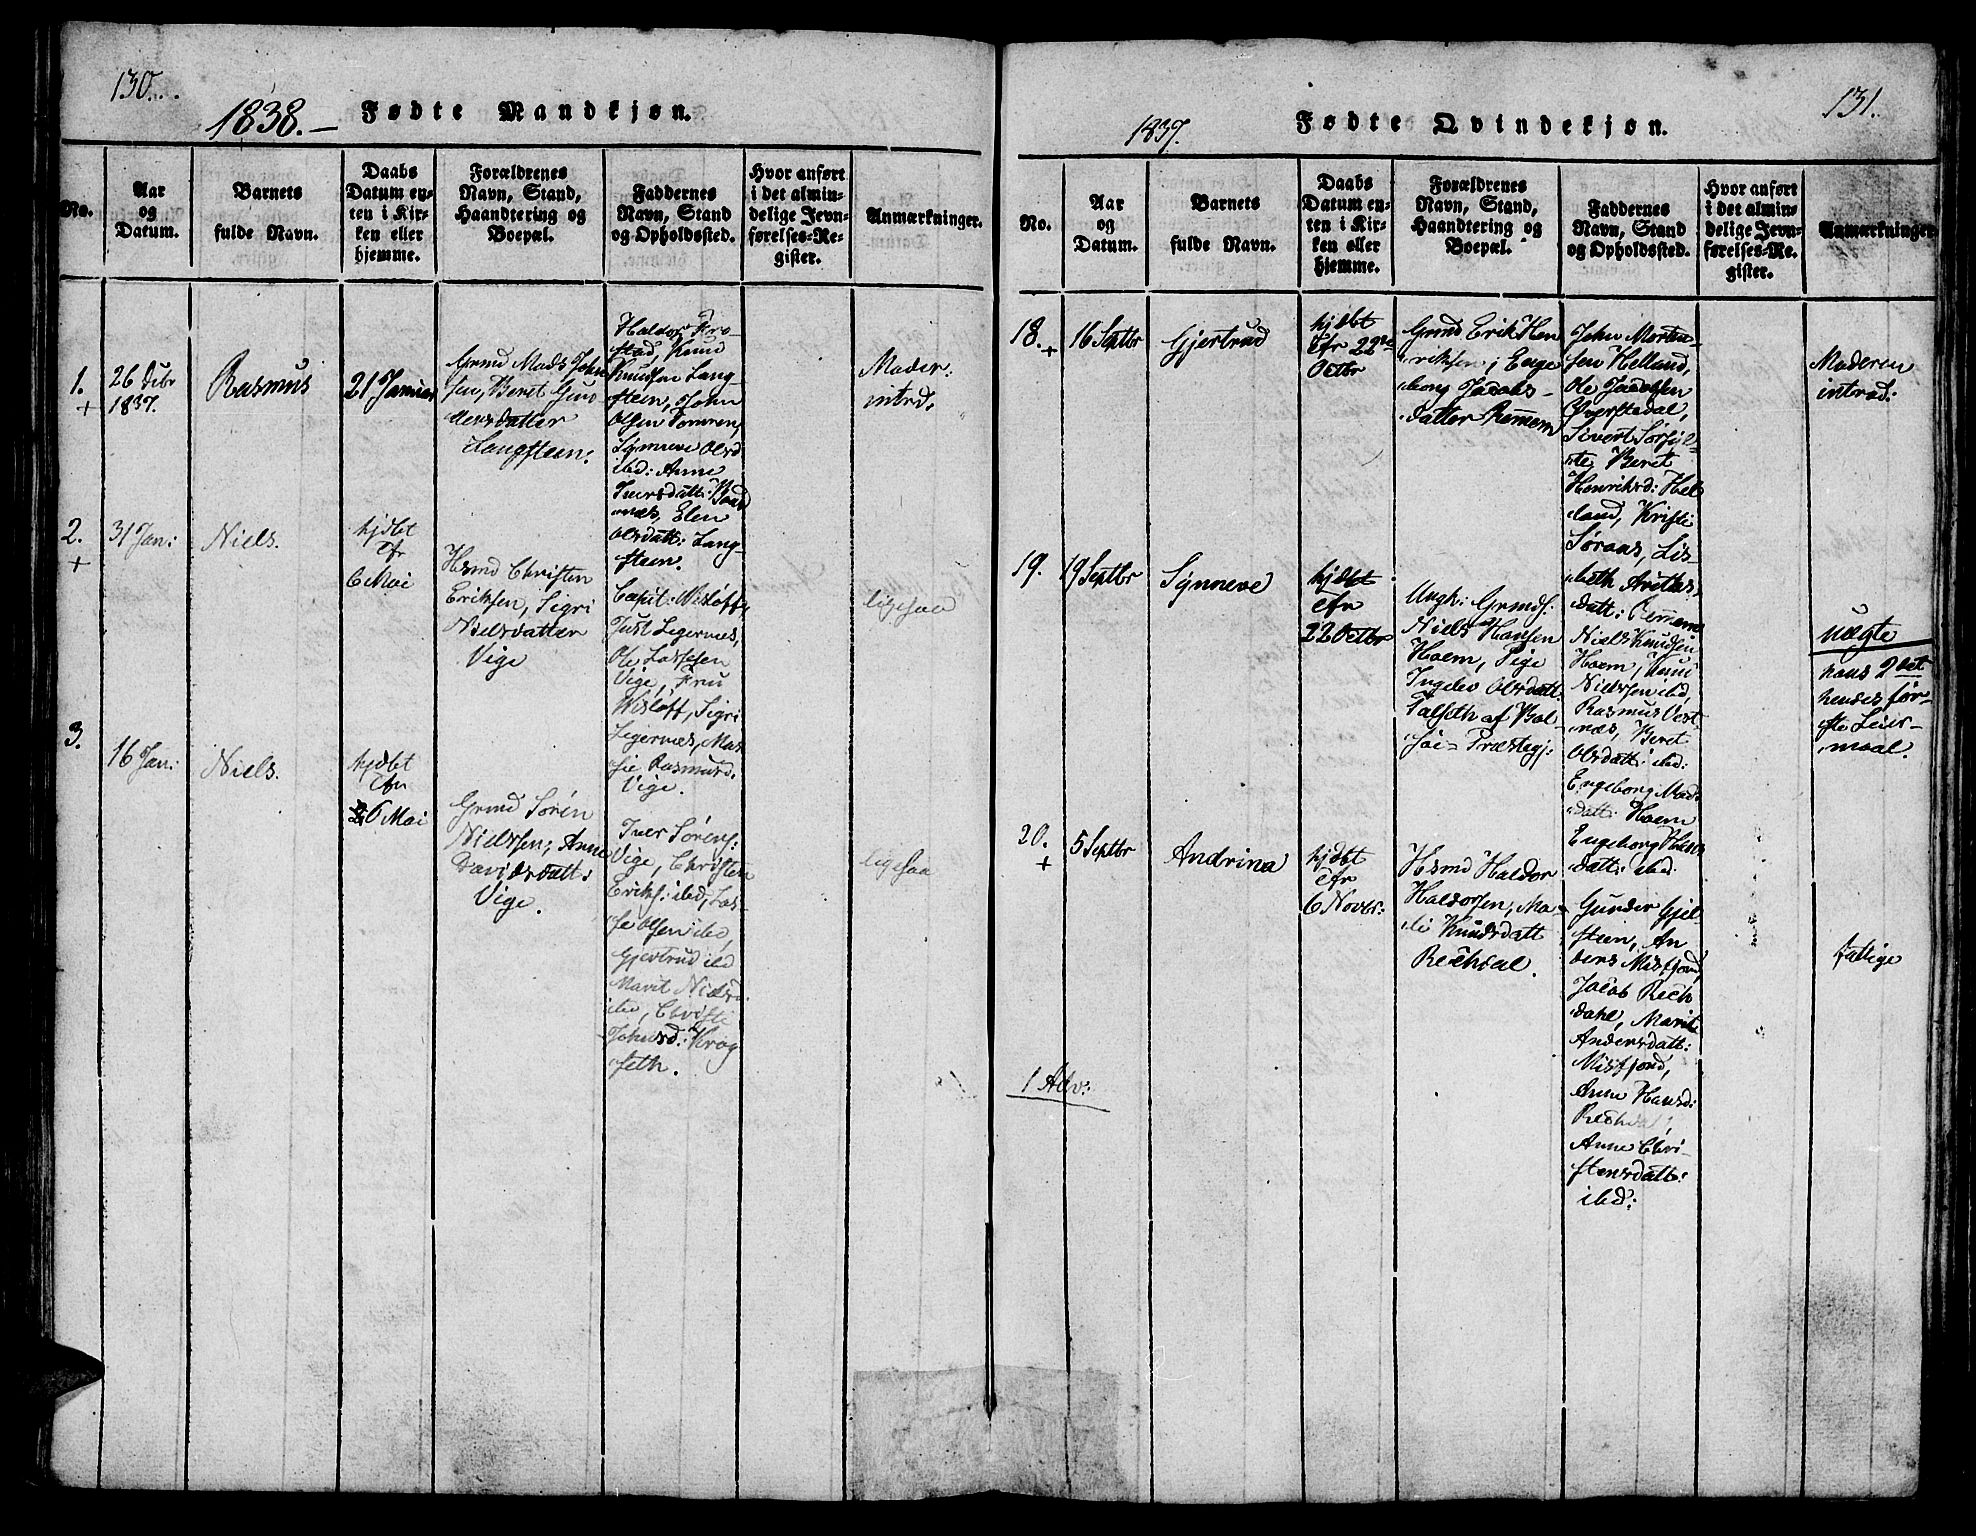 130.
1838.
Fødte Mandkjøn.
No.
Aar
og
Datum.
Barnets
fulde Navn.
Daabs
Datum en-
ten i Kir-
ken eller
hjemme.
Forældrenes
Navn, Stand,
Haandtering og
Boepæl.
Faddernes
Navn, Stand
og Opholdssted.
Hvor anført
i det almin-
delige Jevn-
førelses-Re-
gister.
Anmærkninger.
1.
+
26 Debr
1837.
Rasmus
21 Januar
Grmd Mads John
sen, Beret Gun
dersdatter
Langsteen.
Haldor Kro-
stad, Knud
Knudsen Lang-
steen, John
Olsen Tomren,
Synneve Olsd
ibd: Anne
Iversdatt:
næs, Elen
Olsdatt: Lang-
steen.
Moder:
introd.
2.
+
31 Jan:
Niels.
hjdbt
Cfr
6 Mai
Hsmd Christen
Eriksen, Sigri
Nielsdatter
Vige
Capit: Wisløff,
Just Legernæs,
Ole Lassesen
Vige, Fru
Wisløff, Sigri
Legernæs, Mar
sie Rasmusd.
Vige.
ligesaa
3.
16 Jan:
Niels.
hjdbt
Cfr
6 Mai
Grmd Søren
Nielssen, Anne
Davidsdatt:
Vige.
Iver Sørens:
Vige, Christen
Eriks: ibd, Las-
se Olsen ibd,
Gjertrud ibd
Marit Nielsd.
ibd, Christi
Johnsd: Krog
seth.
ligesaa
131.
1837.
Fødte Qvindekjøn.
No.
Aar
og
Datum.
Barnets
fulde Navn.
Daabs
Datum en-
ten i Kir-
ken eller
hjemme.
Forældrenes
Navn, Stand,
Haandtering og
Boepæl.
Faddernes
Navn, Stand
og Opholdssted.
Hvor anført
i det almin-
delige Jevn-
førelses-Re-
gister.
Anmærkninger
18.
+
16 Septbr
Gjertrud
hjdbt
Cfr 22de
Octbr
Grmd Erik Hen
riksen, Enge
borg Jacobs-
datter Remmem
John Morten-
sen Helland,
Ole Jacobsen
Øverstedal,
Sivert Sørsyl-
te, Beret
Henriksd: Hel
land, Kristi
Søraas, Lis
beth
datt: Remmem
Moderen
introd:
19.
19 Septbr
Synneve
hjdbt
Cfr
22 Octbr
Ungk: Grmds:
Niels Hansen
Hoem, Pige
Ingelev Olsdatt:
Talseth af Bol-
søi- Præstegj:
Niels Knudsen
Hoem, Knud
Nielssen ibd,
Rasmus Vest-
næs, Beret
Olsdatt: ibd:
Engeborg Mads
datt: Hoem
Engeborg
datt: ibd.
uægte
hans 2det
hendes før-
ste Leier-
maal.
20.
+
5 Septbr
Andrina
hjdbt
Cfr
6 Novbr:
Hsmd Haldor
Haldorsen, Ma-
li Knudsdatt
Rechdal.
Gunder Gjel-
steen, An
ders Misfjord,
Jacob Rech
dahl, Marit
Andersdatt:
Misfjord,
Anne Hansd:
Rechdal,
Anne Chri-
stensdatt:
ibd:
fattige
1 Adv: